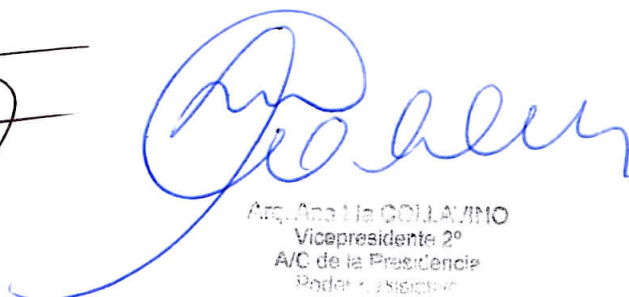 Arq. Ana Lía COLLAVINO
Vicepresidente 2º
A/C de la Presidencia
Poder Legislativo